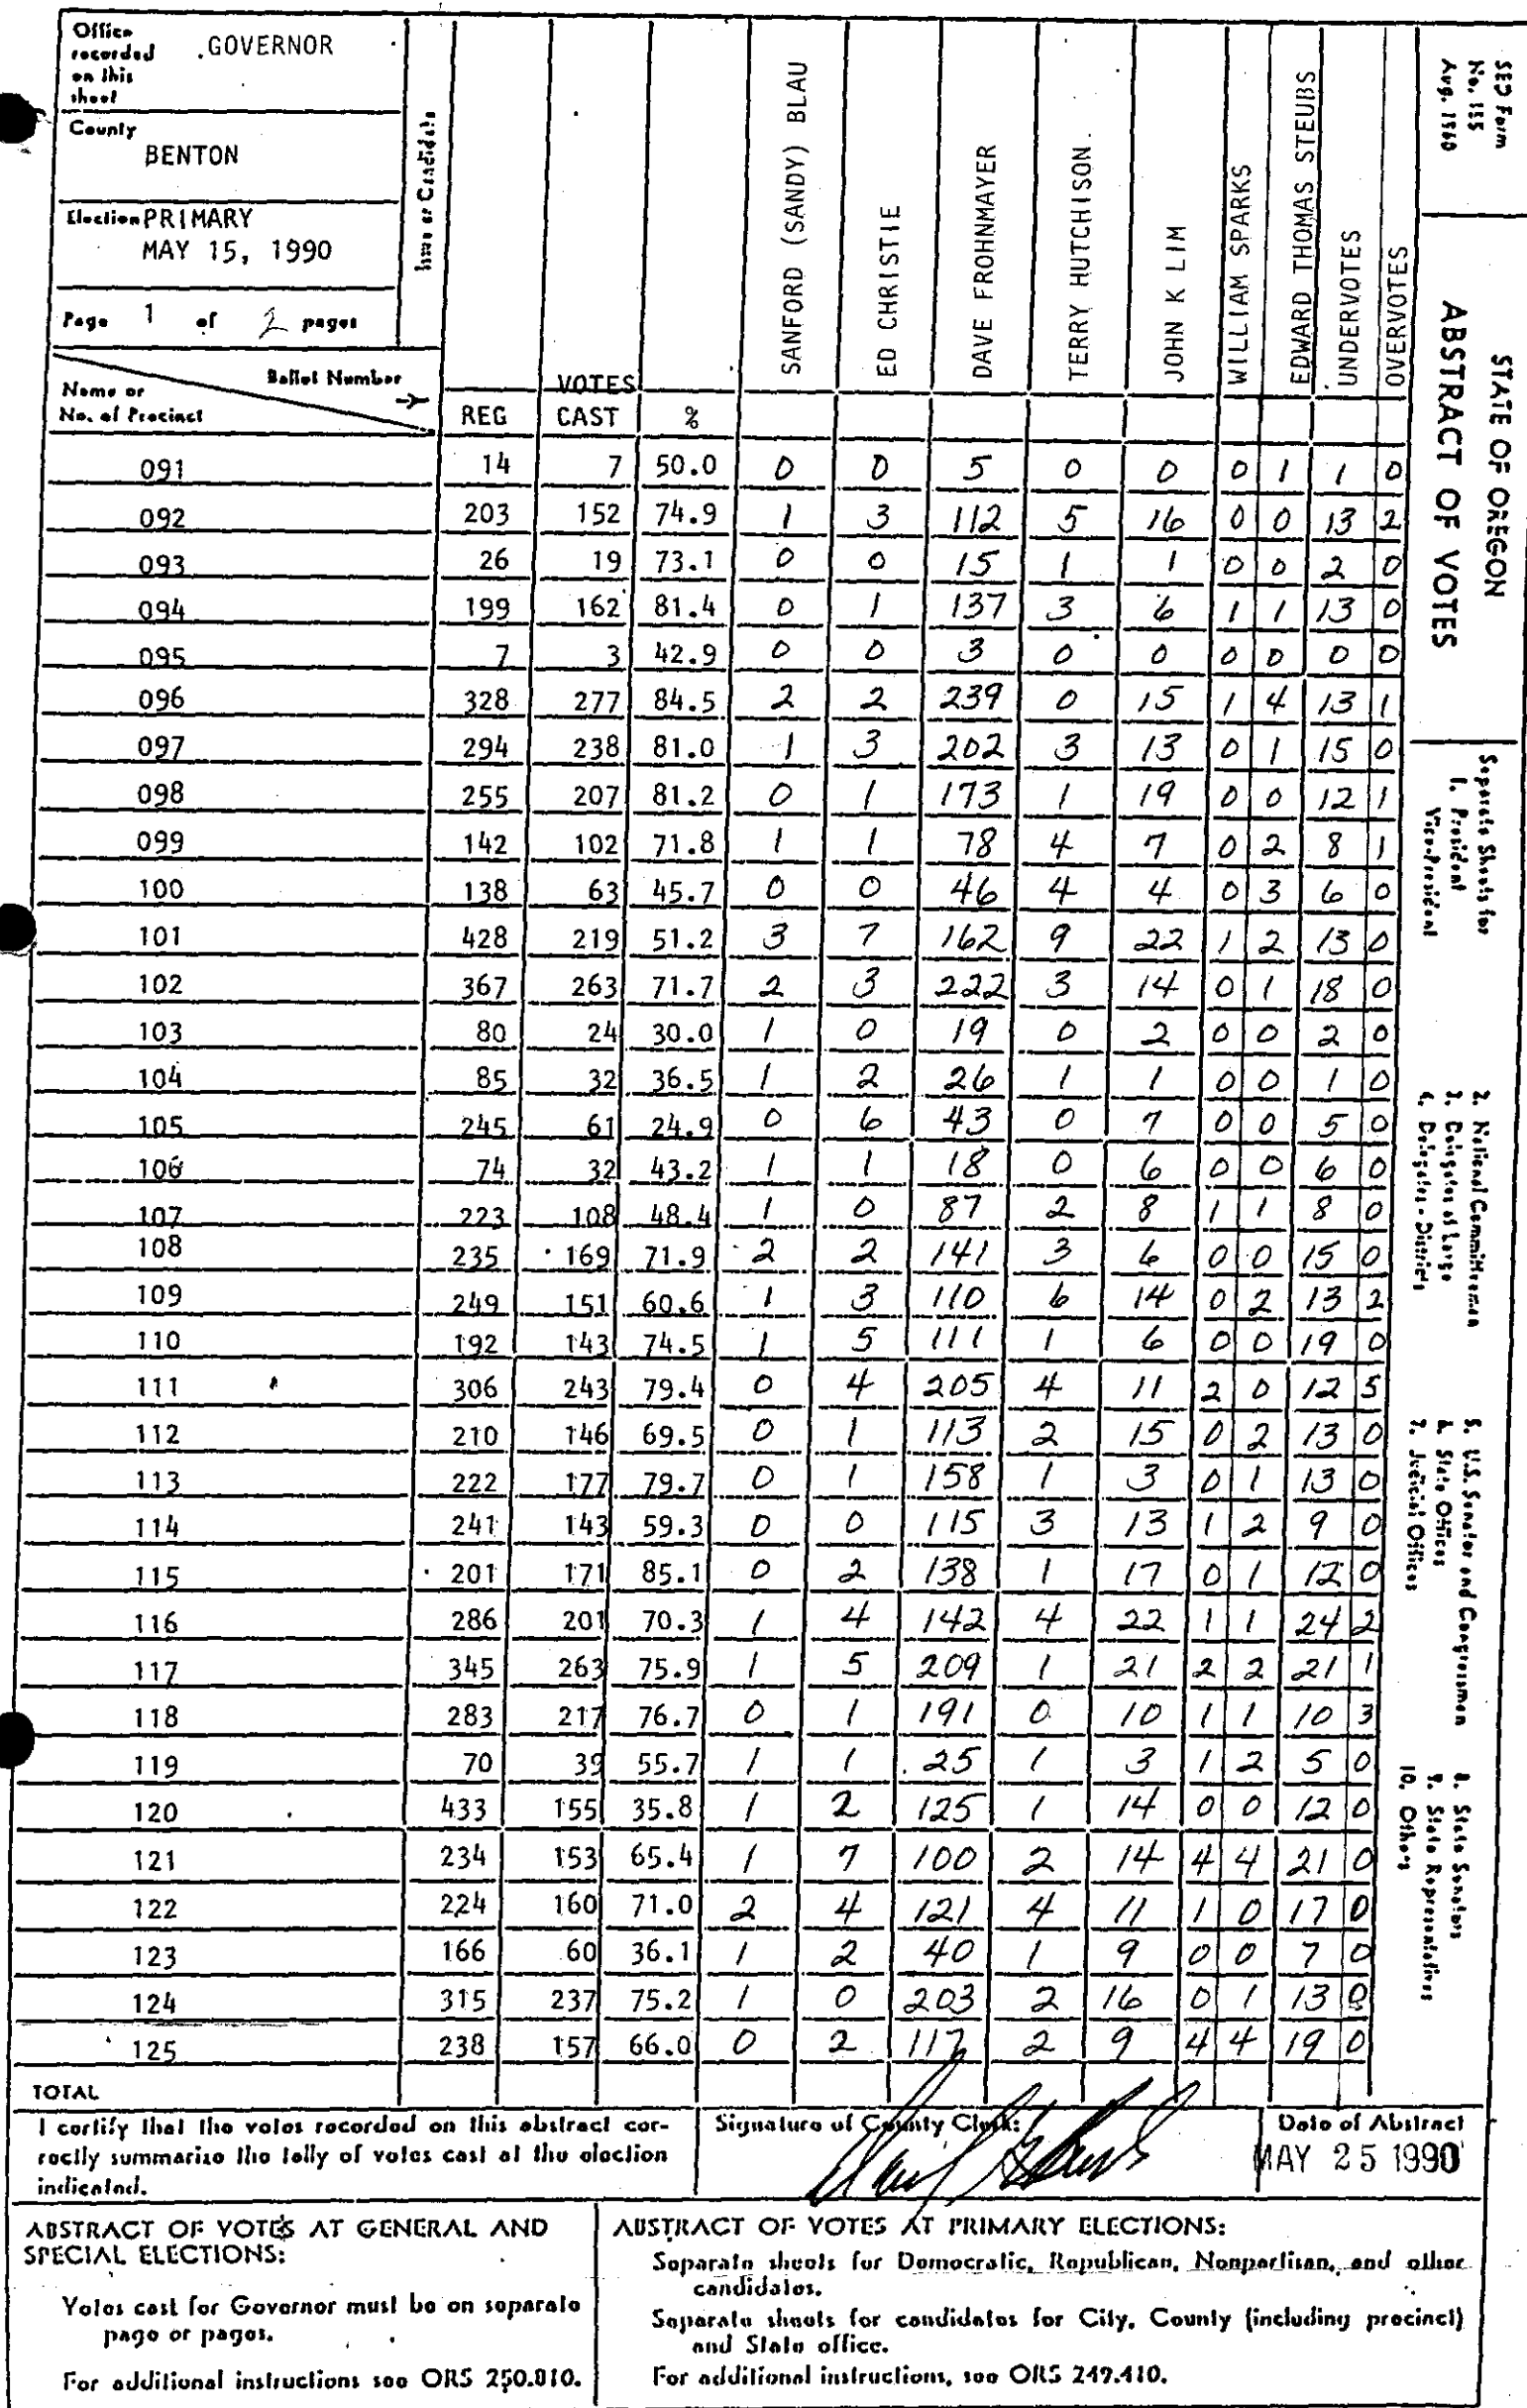 Office recorded on this sheet .GOVERNOR
County BENTON
Election PRIMARY
MAY 15, 1990
Page 1 of 2 pages
Issue or Candidate
SANFORD (SANDY) BLAU
ED CHRISTIE
DAVE FROHNMAYER
TERRY HUTCHISON
JOHN K LIM
WILLIAM SPARKS
EDWARD THOMAS STEUBS
UNDERVOTES
OVERVOTES
Ballot Number
Name or No. of Precinct
REG VOTES CAST %
091 14 7 50.0 0 0 5 0 0 0 1 1 0
092 203 152 74.9 1 3 112 5 16 0 0 13 2
093 26 19 73.1 0 0 15 1 1 0 0 2 0
094 199 162 81.4 0 1 137 3 6 1 1 13 0
095 7 3 42.9 0 0 3 0 0 0 0 0 0
096 328 277 84.5 2 2 239 0 15 1 4 13 1
097 294 238 81.0 1 3 202 3 13 0 1 15 0
098 255 207 81.2 0 1 173 1 19 0 0 12 1
099 142 102 71.8 1 1 78 4 7 0 2 8 1
100 138 63 45.7 0 0 46 4 4 0 3 6 0
101 428 219 51.2 3 7 162 9 22 1 2 13 0
102 367 263 71.7 2 3 222 3 14 0 1 18 0
103 80 24 30.0 1 0 19 0 2 0 0 2 0
104 85 32 36.5 1 2 26 1 1 0 0 1 0
105 245 61 24.9 0 6 43 0 7 0 0 5 0
106 74 32 43.2 1 1 18 0 6 0 0 6 0
107 223 108 48.4 1 0 87 2 8 1 1 8 0
108 235 169 71.9 2 2 141 3 6 0 0 15 0
109 249 151 60.6 1 3 110 6 14 0 2 13 2
110 192 143 74.5 1 5 111 1 6 0 0 19 0
111 306 243 79.4 0 4 205 4 11 2 0 12 5
112 210 146 69.5 0 1 113 2 15 0 2 13 0
113 222 177 79.7 0 1 158 1 3 0 1 13 0
114 241 143 59.3 0 0 115 3 13 1 2 9 0
115 201 171 85.1 0 2 138 1 17 0 1 12 0
116 286 201 70.3 1 4 142 4 22 1 1 24 2
117 345 263 75.9 1 5 209 1 21 2 2 21 1
118 283 217 76.7 0 1 191 0 10 1 1 10 3
119 70 39 55.7 1 1 25 1 3 1 2 5 0
120 433 155 35.8 1 2 125 1 14 0 0 12 0
121 234 153 65.4 1 7 100 2 14 4 4 21 0
122 224 160 71.0 2 4 121 4 11 1 0 17 0
123 166 60 36.1 1 2 40 1 9 0 0 7 0
124 315 237 75.2 1 0 203 2 16 0 1 13 0
125 238 157 66.0 0 2 117 2 9 4 4 19 0
TOTAL
I certify that the votes recorded on this abstract cor-
rectly summarize the tally of votes cast at the election
indicated.
Signature of County Clerk:
Date of Abstract
MAY 25 1990
ABSTRACT OF VOTES AT GENERAL AND
SPECIAL ELECTIONS:
Votes cast for Governor must be on separate
page or pages.
For additional instructions see ORS 250.810.
ABSTRACT OF VOTES AT PRIMARY ELECTIONS:
Separate sheets for Democratic, Republican, Nonpartisan, and other
candidates.
Separate sheets for candidates for City, County (including precinct)
and State office.
For additional instructions, see ORS 249.410.
SED Form
No. 155
Aug. 1960
STATE OF OREGON
ABSTRACT OF VOTES
Separate Sheets for
1. President
Vice-President
2. National Committeeman
3. Delegates at Large
4. Delegates - Districts
5. U.S. Senator and Congressmen
6. State Offices
7. Judicial Offices
8. State Senators
9. State Representatives
10. Others